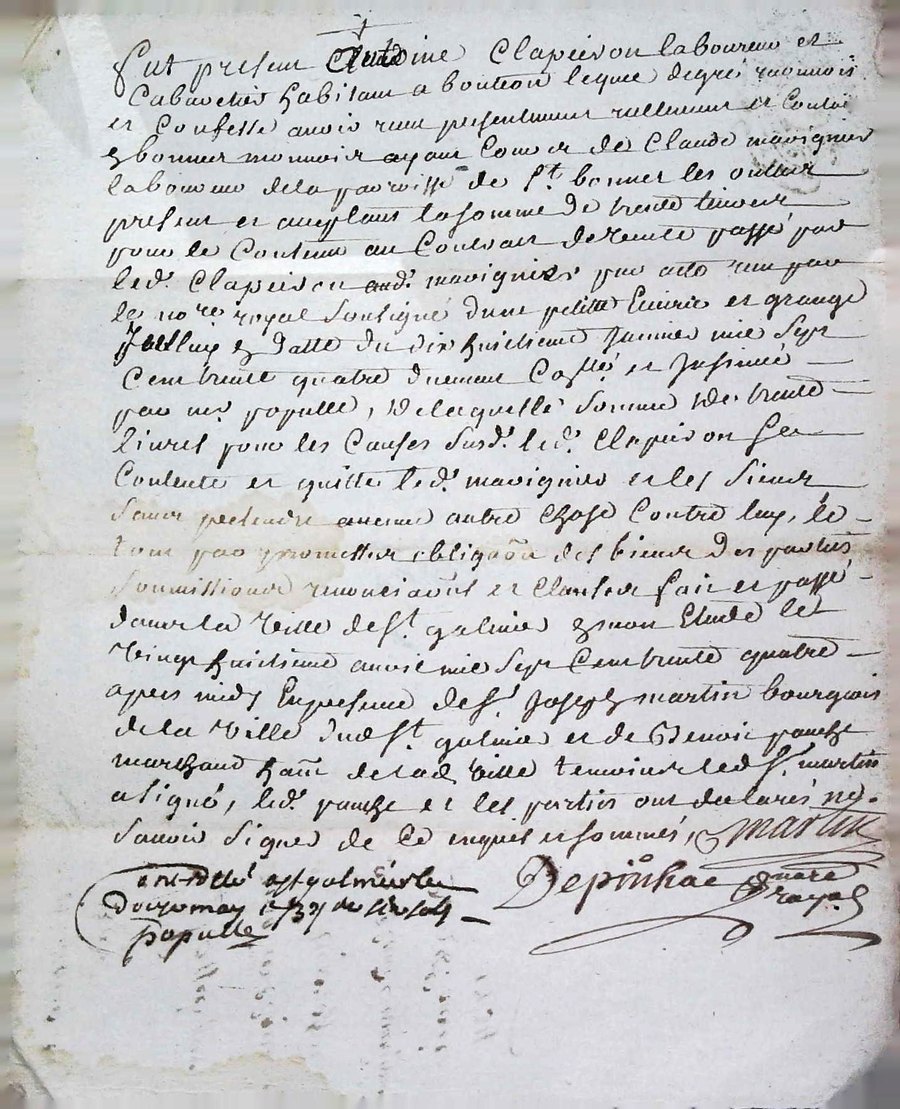 fut present Antoine Clapeiron laboureur et
Cabaretier habitant a bouteon lequel degré reconnois
et Confesse avoir receu presentement reellement et Contā
& bonne monnoie ayant Cours de Claude mavignier
laboureur dela parroisse de St. bonnet les oulles
present et aceptant la somme de trente livres
pour le Contenu au Contract de vente passé par
led. Clapeiron aud. mavignier par acte receu par
le nore. royal soussigné dune petitte Ecurie et grange
Joellux & datte du dix huictieme Janvier mil sept
Cent trente quatre duement Collé et Insinué
par mr. populle, de laquelle somme de trente
livres pour les Causes susd. led. Clapeiron se
Contente et quitte led. mavignier et les siens
sans pretendre aucune autre chose Contre luy, le
tout par promesses obligaōn des biens des parties
soumissions renonciaōns et Clauses fait et passé
dans la ville de St. galmier & mon Etude le
vingt huictieme avril mil sept Cent trente quatre
apres midy En presence de Sr. Joseph martin bourgois
de la ville dud St. galmier et de Benoit
marchand hant. de lad. ville temoins led Sr. martin
a signé, led. et les parties ont declarés ne
savoir signer de Ce enquis et sommés, martin
Depinhac nore royal
Conrollé a St galmier le
douze may 1734
populle